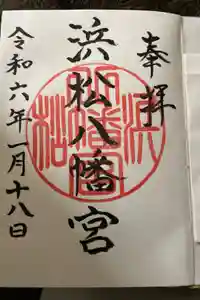 奉拝
浜松八幡宮
令和六年一月十八日